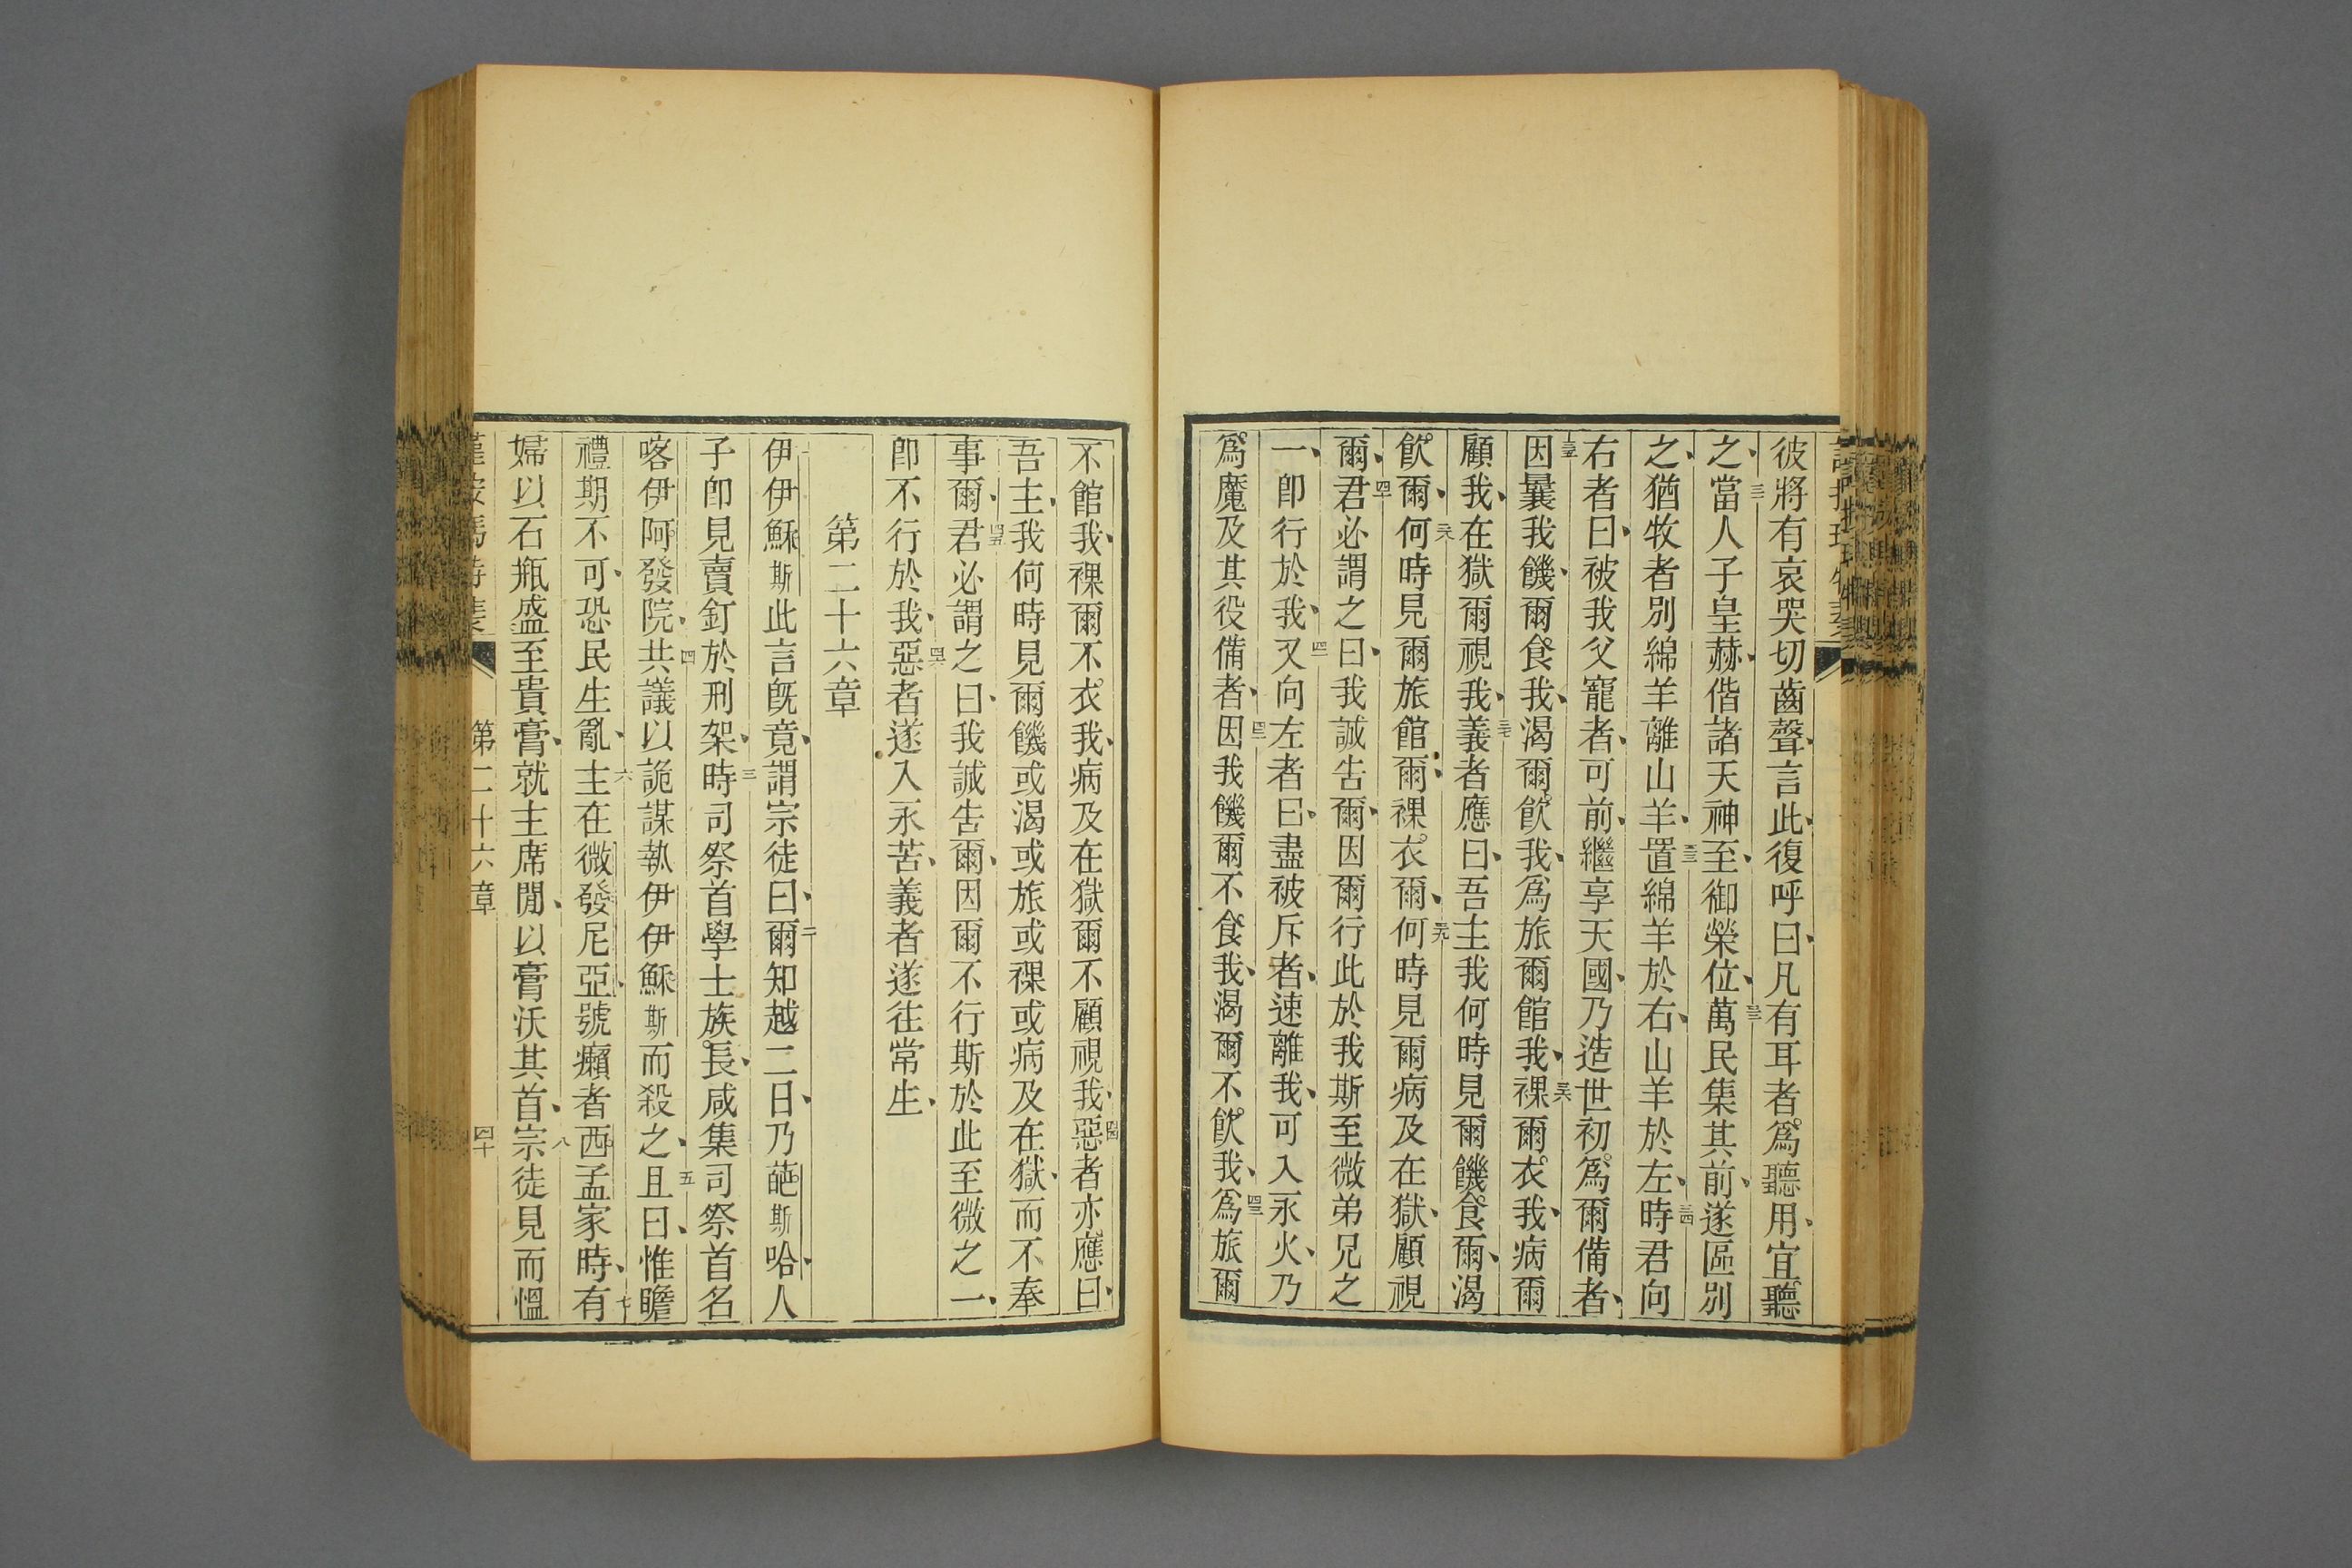 彼將有哀哭切齒聲、言此、復呼曰、凡有耳者爲聽用、宜聽
之、三一當人子皇赫、偕諸天神至、御榮位、三二萬民集其前、遂區別
之、猶牧者別綿羊離山羊、三三置綿羊於右、山羊於左、三四時君向
右者曰、被我父寵者、可前、繼享天國、乃造世初爲爾備者、
三五因曩我饑、爾食我、渴爾飮我、爲旅爾館我、三六裸爾衣我、病爾
顧我、在獄爾視我、三七義者應曰、吾主我何時見爾饑食爾、渴
飮爾、三八何時見爾旅館爾、裸衣爾、三九何時見爾病及在獄、顧視
爾、四十君必謂之曰、我誠告爾、因爾行此於我斯至微弟兄之
一、卽行於我、四一又向左者曰、盡被斥者、速離我、可入永火、乃
爲魔及其役備者、四二因我饑爾不食我、渴爾不飮我、四三爲旅爾
不館我、裸爾不衣我、病及在獄爾不顧視我、四四惡者亦應曰、
吾主、我何時見爾饑或渴或旅或裸或病及在獄、而不奉
事爾、四五君必謂之曰、我誠告爾、因爾不行斯於此至微之一、
卽不行於我、四六惡者遂入永苦、義者遂往常生、
第二十六章
一伊伊穌斯此言旣竟、謂宗徒曰、二爾知越二日、乃葩斯哈、人
子卽見賣釘於刑架、三時司祭首學士族長、咸集司祭首名
喀伊阿發院、四共議以詭謀執伊伊穌斯而殺之、五且曰、惟瞻
禮期不可、恐民生亂、六主在微發尼亞、號癩者西孟家時、七有
婦以石甁盛至貴膏、就主席閒、以膏沃其首、八宗徒見而慍
第二十六章
四十